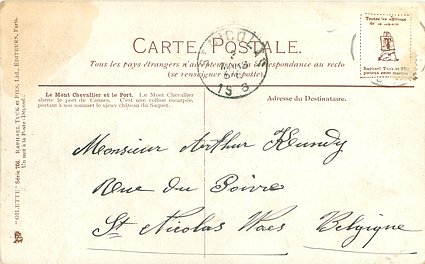 CARTE POSTALE.
Tous les pays étrangers n'acceptent pas la correspondance au recto
(se renseigner à la poste).
Toutes les éditions
Raphael Tuck et Fils
portent cette marque
Le Mont Chevallier et le Port. Le Mont Chevallier
abrite le port de Cannes. C'est une colline escarpée,
portant à son sommet le vieux château du Suquet.
Adresse du Destinataire.
"OILETTE" Série 766. RAPHAEL TUCK ET FILS, Ltd, EDITEURS, Paris.
Monsieur Arthur
Rue du Poivre
St Nicolas Waes Belgique